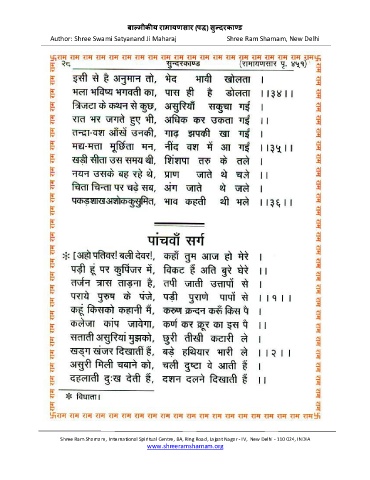 बाल्मीकीय रामायणसार (पद्य) सुन्दरकाण्ड
Author: Shree Swami Satyanand Ji Maharaj Shree Ram Sharnam, New Delhi
卐राम राम राम राम राम राम राम राम राम राम राम राम राम राम राम卐
२८ सुन्दरकाण्ड (रामायणसार पृ. ४५९)
इसी से है अनुमान तो, भेद भावी खोलता ।
भला भविष्य भगवती का, पास ही है डोलता ।।३४।।
त्रिजटा के कथन से कुछ, असुरियाँ सकुचा गईं ।
रात भर जगते हुए भी, अधिक कर उकता गईं ।।
तन्द्रा-वश आँखें उनकी, गाढ़ झपकी खा गईं ।
मद्य-मत्ता मूर्छिता मन, नींद वश में आ गईं ।।३५।।
खड़ी सीता उस समय थी, शिंशपा तरु के तले ।
नयन उसके बह रहे थे, प्राण जाते थे चले ।।
चिता चिन्ता पर चढ़े सब, अंग जाते थे जले ।
पकड़ शाख अशोक कुसुमित, भाव कहती थी भले ।।३६।।
पांचवाँ सर्ग
* [अहो पतिवर! बली देवर!, कहाँ तुम आज हो मेरे ।
पड़ी हूं पर कुपिंजर में, विकट हैं अति बुरे घेरे ।।
तर्जन त्रास ताड़ना है, तपी जाती उत्तापों से ।
पराये पुरुष के पंजे, पड़ी पुराणे पापों से ।।१।।
कहूं किसको कहानी मैं, करुण क्रन्दन करूँ किस पे ।
कलेजा कांप जावेगा, कर्ण कर क्रूर का इस पे ।।
सताती असुरियां मुझको, छुरी तीखी कटारी ले ।
खड्ग खंजर दिखातीं हैं, बड़े हथियार भारी ले ।।२।।
असुरी मिली चबाने को, चली दुष्टा ये आती हैं ।
दहलाती दुःख देती हैं, दशन दलने दिखाती हैं ।।
* विधाता।
卐राम राम राम राम राम राम राम राम राम राम राम राम राम राम राम卐
Shree Ram Sharnam, International Spiritual Centre, 8A, Ring Road, Lajpat Nagar - IV, New Delhi - 110 024, INDIA
www.shreeramsharnam.org